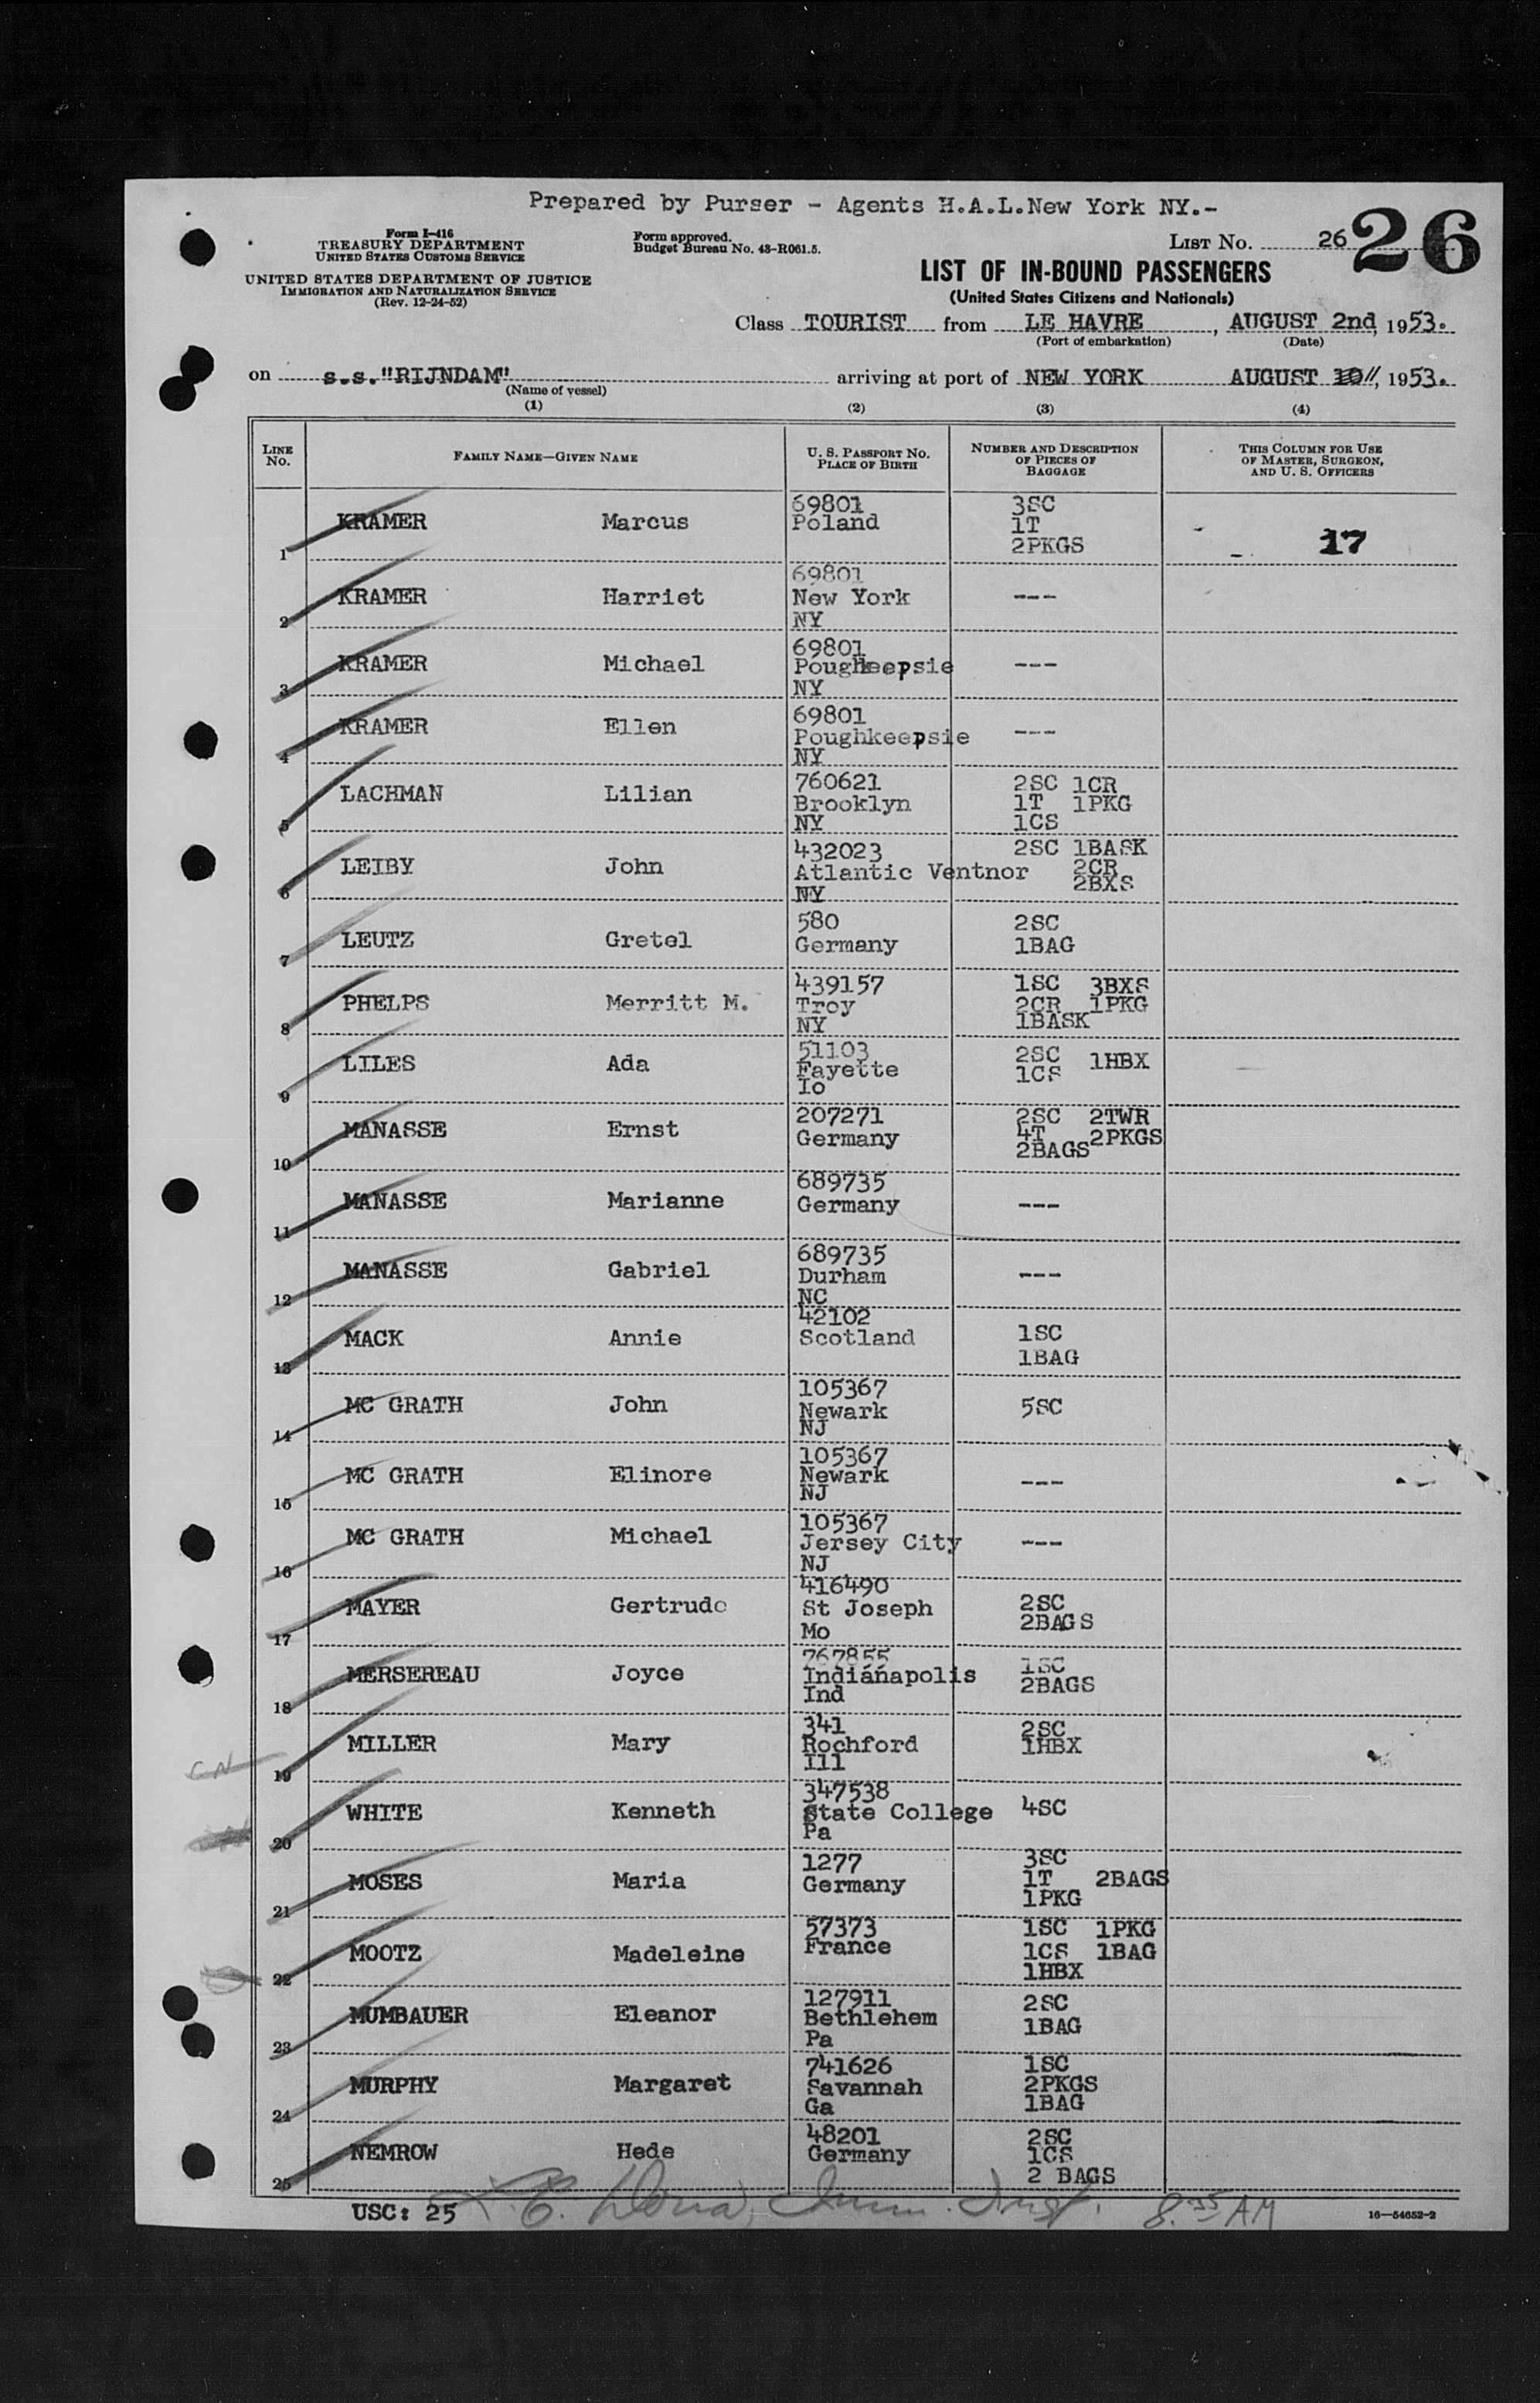 Prepared by Purser - Agents H.A.L.New York NY.-
Form I-416
TREASURY DEPARTMENT
UNITED STATES CUSTOMS SERVICE
UNITED STATES DEPARTMENT OF JUSTICE
IMMIGRATION AND NATURALIZATION SERVICE
(Rev. 12-24-52)
Form approved.
Budget Bureau No. 43-R061.5.
LIST NO. 26 26
LIST OF IN-BOUND PASSENGERS
(United States Citizens and Nationals)
Class TOURIST from LE HAVRE, AUGUST 2nd, 1953.
(Port of embarkation) (Date)
on s.s."RIJNDAM" arriving at port of NEW YORK AUGUST 10 11, 1953.
(Name of vessel)
(1) (2) (3) (4)
LINE NO.
FAMILY NAME—GIVEN NAME
U. S. PASSPORT NO.
PLACE OF BIRTH
NUMBER AND DESCRIPTION
OF PIECES OF
BAGGAGE
THIS COLUMN FOR USE
OF MASTER, SURGEON,
AND U. S. OFFICERS
1 KRAMER Marcus
69801
Poland
3SC
1T
2PKGS
17
2 KRAMER Harriet
69801
New York
NY
---
3 KRAMER Michael
69801
Poughkeepsie
NY
---
4 KRAMER Ellen
69801
Poughkeepsie
NY
---
5 LACHMAN Lilian
760621
Brooklyn
NY
2SC 1CR
1T 1PKG
1CS
6 LEIBY John
432023
Atlantic Ventnor
NY
2SC 1BASK
2CR
2BXS
7 LEUTZ Gretel
580
Germany
2SC
1BAG
8 PHELPS Merritt M.
439157
Troy
NY
1SC 3BXS
2CR 1PKG
1BASK
9 LILES Ada
51103
Fayette
Io
2SC 1HBX
1CS
10 MANASSE Ernst
207271
Germany
2SC 2TWR
4T 2PKGS
2BAGS
11 MANASSE Marianne
689735
Germany
---
12 MANASSE Gabriel
689735
Durham
NC
---
13 MACK Annie
42102
Scotland
1SC
1BAG
14 MC GRATH John
105367
Newark
NJ
5SC
15 MC GRATH Elinore
105367
Newark
NJ
---
16 MC GRATH Michael
105367
Jersey City
NJ
---
17 MAYER Gertrude
416490
St Joseph
Mo
2SC
2BAGS
18 MERSEREAU Joyce
767855
Indianapolis
Ind
1SC
2BAGS
CN
19 MILLER Mary
341
Rochford
Ill
2SC
1HBX
20 WHITE Kenneth
347538
State College
Pa
4SC
21 MOSES Maria
1277
Germany
3SC
1T 2BAGS
1PKG
22 MOOTZ Madeleine
57373
France
1SC 1PKG
1CS 1BAG
1HBX
23 MUMBAUER Eleanor
127911
Bethlehem
Pa
2SC
1BAG
24 MURPHY Margaret
741626
Savannah
Ga
1SC
2PKGS
1BAG
25 NEMROW Hede
48201
Germany
2SC
1CS
2 BAGS
USC: 25 Imm. Insp. 8.35 AM
16—54652-2